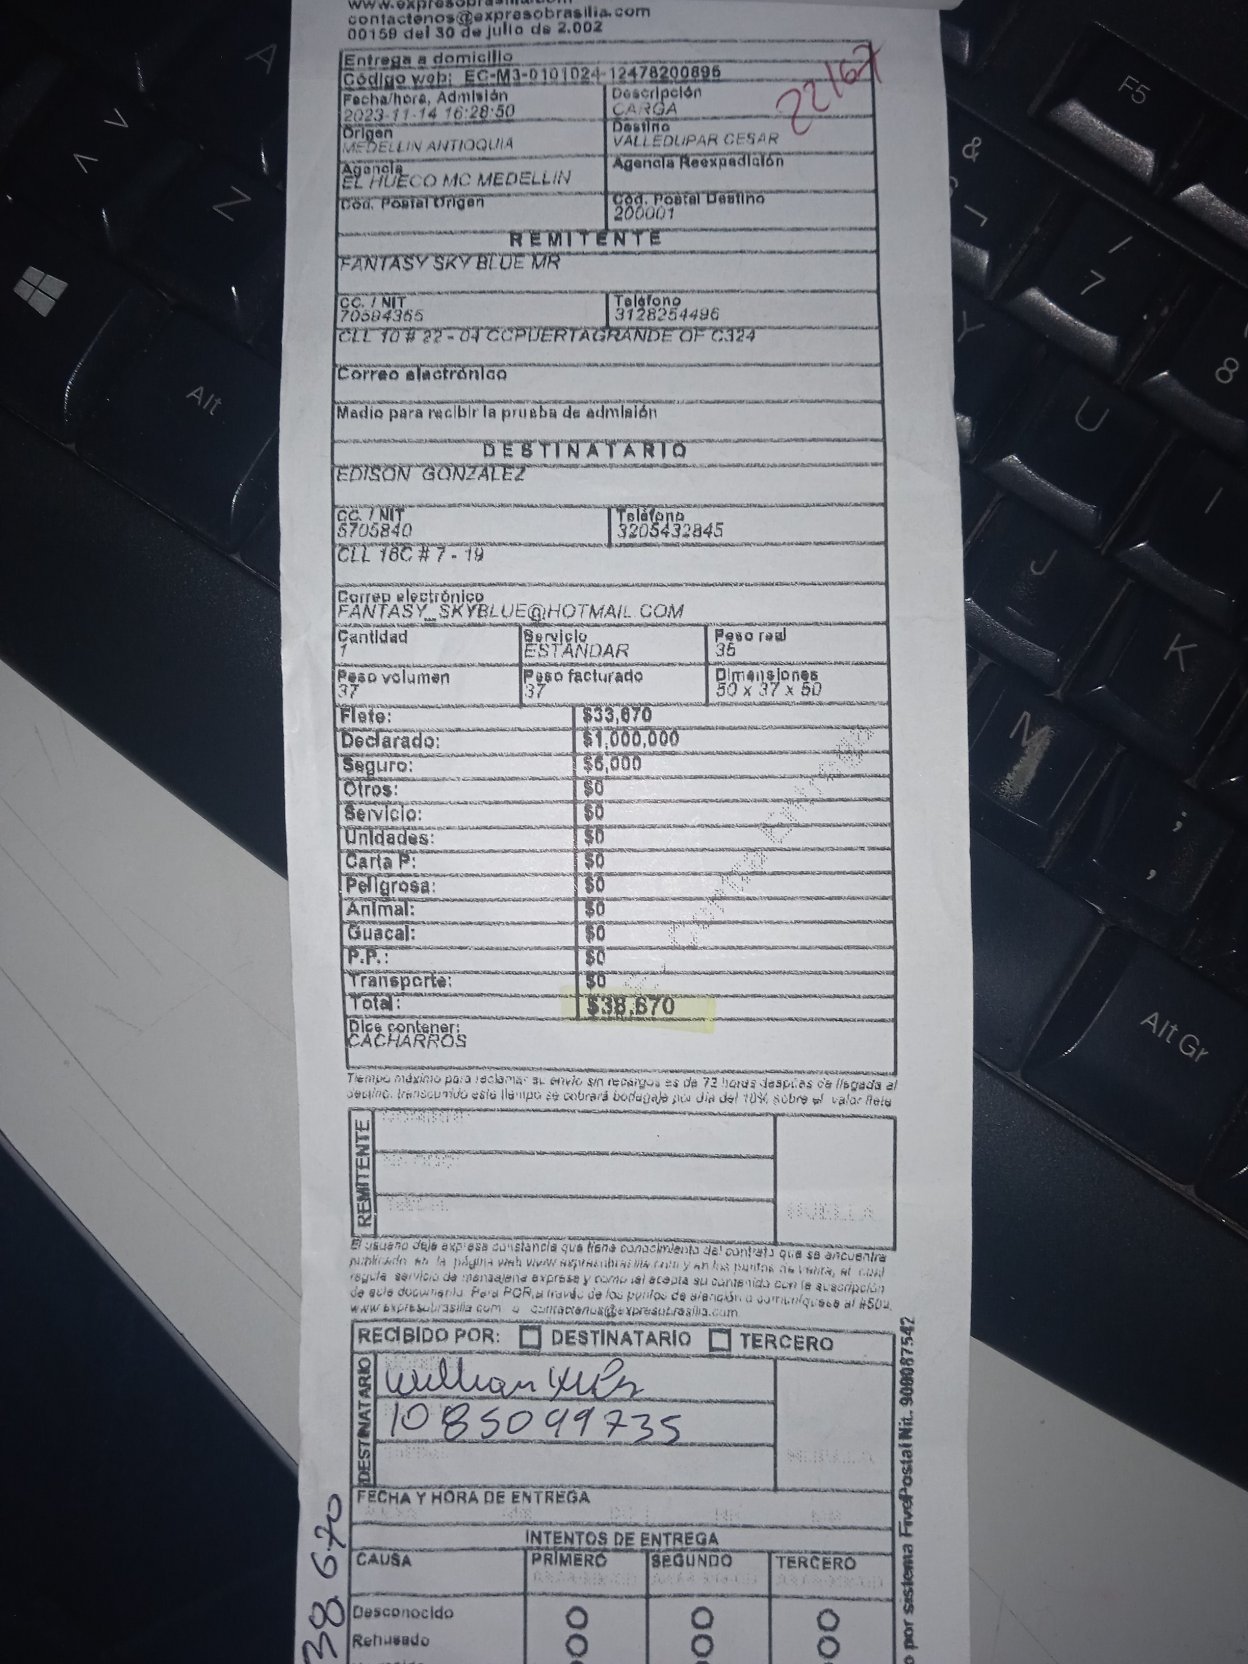 www.expresobrasilia.com
contactenos@expresobrasilia.com
00159 del 30 de julio de 2.002
Entrega a domicilio
Código web: EC-M3-0101024-12478200895
22167
Fecha/hora, Admisión Descripción
2023-11-14 16:28:50 CARGA
Origen Destino
MEDELLIN ANTIOQUIA VALLEDUPAR CESAR
Agencia Agencia Reexpedición
EL HUECO MC MEDELLIN
Cód. Postal Origen Cód. Postal Destino
200001
REMITENTE
FANTASY SKY BLUE MR
CC. / NIT Teléfono
70594365 3128254496
CLL 10 # 22 - 04 CCPUERTAGRANDE OF C324
Correo electrónico
Medio para recibir la prueba de admisión
DESTINATARIO
EDISON GONZALEZ
CC. / NIT Teléfono
5705840 3205432845
CLL 16C # 7 - 19
Correo electrónico
FANTASY_SKYBLUE@HOTMAIL.COM
Cantidad Servicio Peso real
1 ESTANDAR 35
Peso volumen Peso facturado Dimensiones
37 37 50 x 37 x 50
Flete: $33,670
Declarado: $1,000,000
Seguro: $5,000
Otros: $0
Servicio: $0
Unidades: $0
Carta P: $0
Peligrosa: $0
Animal: $0
Guacal: $0
P.P.: $0
Transporte: $0
Total: $38,670
Dice contener:
CACHARROS
Contra Entrega
Tiempo máximo para reclamar su envío sin recargos es de 72 horas después de llegada al
destino, transcurrido este tiempo se cobrará bodegaje por día del 10% sobre el valor flete
REMITENTE
HUELLA
El usuario deja expresa constancia que tiene conocimiento del contrato que se encuentra
publicado en la página web www.expresobrasilia.com y en los puntos de venta, el cual
regula servicio de mensajería expresa y como tal acepta su contenido con la suscripción
de este documento. Para PQR,a través de los puntos de atención o comuníquese al #502,
www.expresobrasilia.com o contactenos@expresobrasilia.com
RECIBIDO POR: DESTINATARIO TERCERO
DESTINATARIO
1085099735
FECHA Y HORA DE ENTREGA
INTENTOS DE ENTREGA
CAUSA PRIMERO SEGUNDO TERCERO
Desconocido
Rehusado
38.670
o por sistema FivePostal Nit. 900087542
F5
A
Z
Alt
&
6
¬
/
7
8
Y
U
I
J
K
M
;
,
Alt Gr